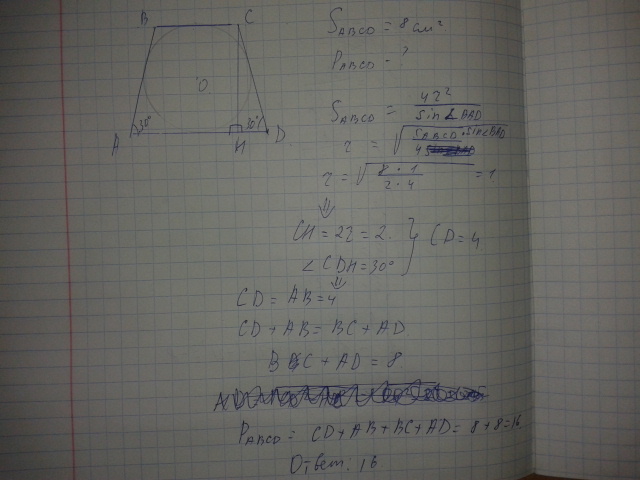 B C
O
A 30° 30° D
H
S_ABCD = 8 см²
P_ABCD - ?
S_ABCD = 4r² / sin∠BAD
r = √(S_ABCD · sin∠BAD / 4)
r = √(8 · 1 / 2 · 4) = 1
⇓
CH = 2r = 2. } CD = 4
∠CDH = 30°
⇓
CD = AB = 4
CD + AB = BC + AD
BC + AD = 8
P_ABCD = CD + AB + BC + AD = 8 + 8 = 16
Ответ. 16